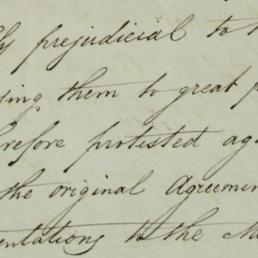 ly prejudicial to
ing them to great
refore protested ag
the original Agreemen
entations to the